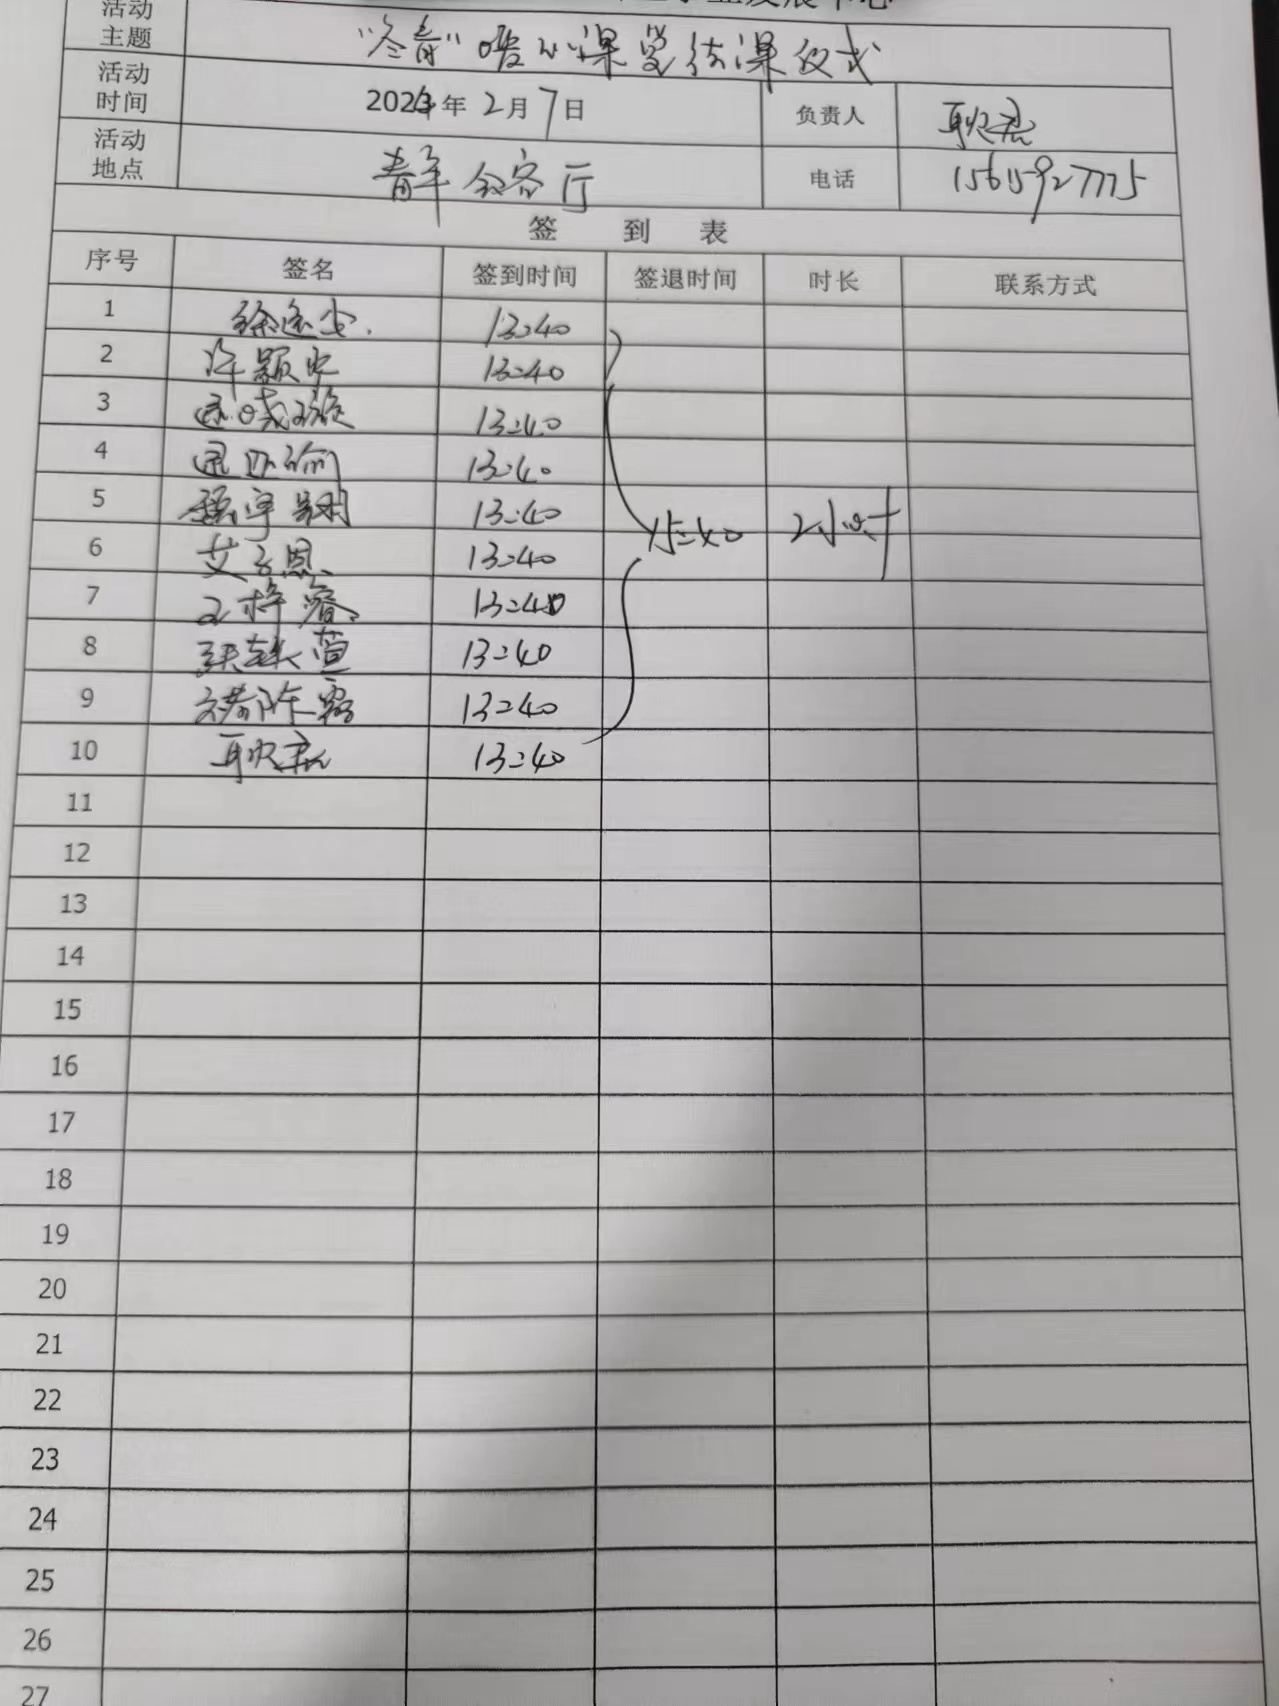 活动
主题 "冬青" 唔心课堂结课仪式
活动
时间 2024年2月7日 负责人 耿君
活动
地点 青年会客厅 电话 15615927775
签 到 表
序号 签名 签到时间 签退时间 时长 联系方式
1 13:40
2 许颢中 13:40
3 13:40
4 13:40
5 13:40
6 艾子恩 13:40
15:40 2小时
7 王梓睿 13:40
8 萱 13:40
9 13:40
10 耿君 13:40
11
12
13
14
15
16
17
18
19
20
21
22
23
24
25
26
27